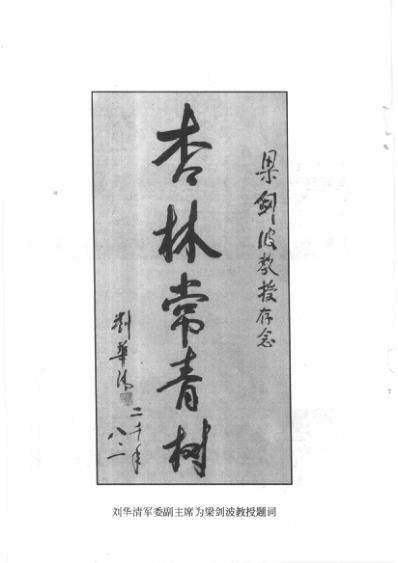 梁剑波教授存念
杏林常青树
劉華清
二千年
八.一
刘华清军委副主席为梁剑波教授题词